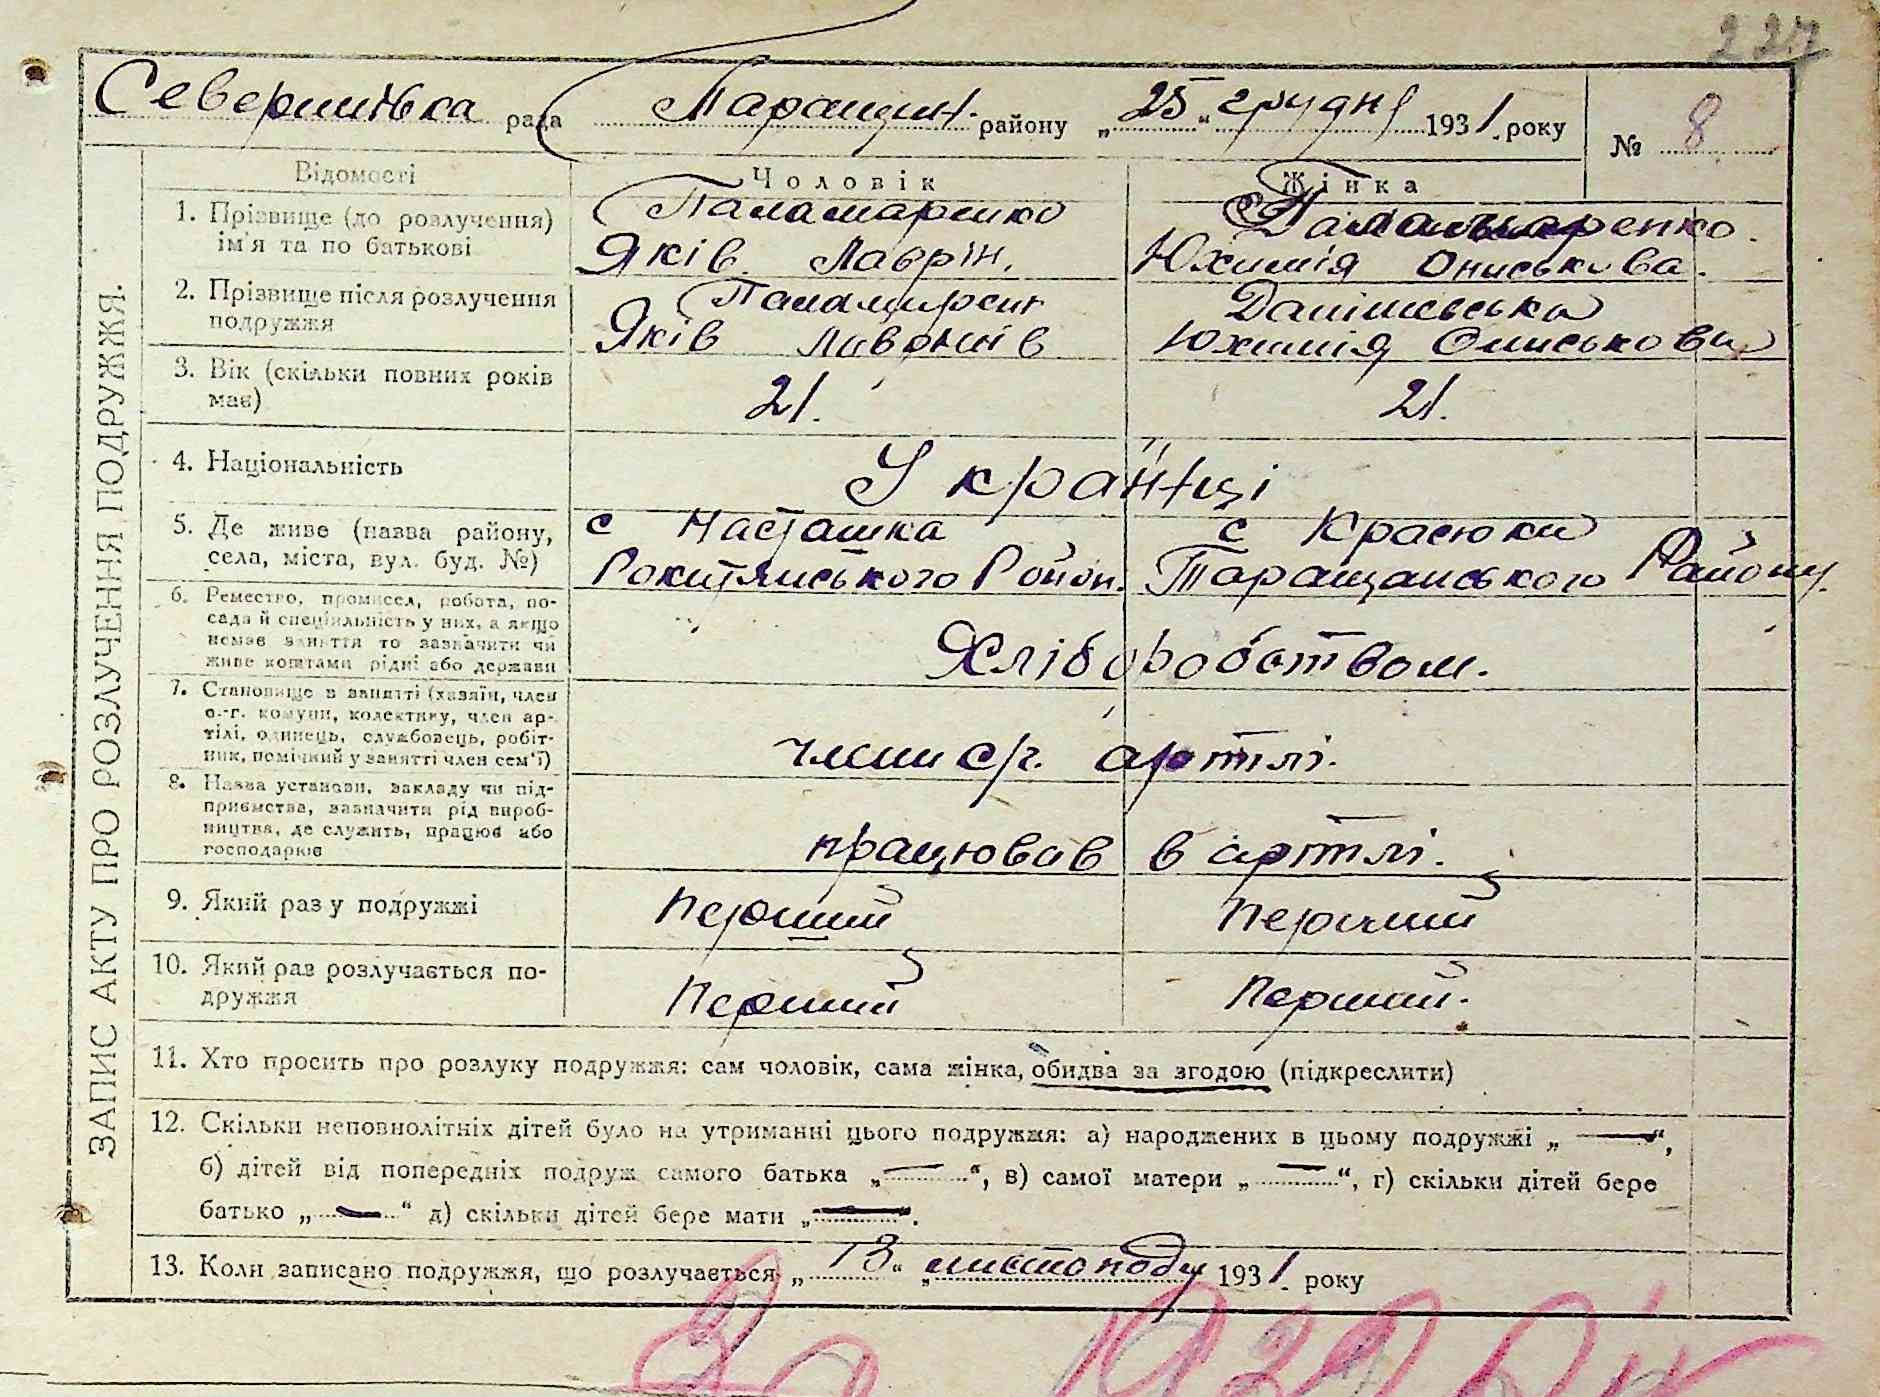 227
Северинівка рада Таращан. району „25“ грудня 1931 року № 8
ЗАПИС АКТУ ПРО РОЗЛУЧЕННЯ ПОДРУЖЖЯ.
Відомості Чоловік Жінка
1. Прізвище (до розлучення) Паламаренко Паламаренко
ім'я та по батькові Яків Лаврін. Юхимія Ониськова.
2. Прізвище після розлучення Паламарен Данішевська
подружжя Яків Лаврінів Юхимія Ониськова
3. Вік (скільки повних років 21. 21.
має)
4. Національність Українці
5. Де живе (назва району, с Насташка с Красюки
села, міста, вул. буд. №) Рокитянського Район. Таращанського Району.
6. Ремество, промисел, робота, по-
сада й спеціяльність у них, а якщо
немає заняття то зазначити чи Хліборобством.
живе коштами рідні або держави
7. Становище в занятті (хазяїн, член
с.-г. комуни, колективу, член ар-
тілі, одинець, службовець, робіт- члени с/г. артілі.
ник, помічний у занятті член сем'ї)
8. Назва установи, закладу чи під-
приємства, зазначити рід вироб-
ництва, де служить, працює або працював в артілі.
господарює
9. Який раз у подружжі Перший Перший
10. Який раз розлучається по- Перший Перший.
дружжя
11. Хто просить про розлуку подружжя: сам чоловік, сама жінка, обидва за згодою (підкреслити)
12. Скільки неповнолітніх дітей було на утриманні цього подружжя: а) народжених в цьому подружжі „—“,
б) дітей від попередніх подруж самого батька „—“, в) самої матери „—“, г) скільки дітей бере
батько „—“ д) скільки дітей бере мати „—“.
13. Коли записано подружжя, що розлучається „13“ „листопаду 1931 року